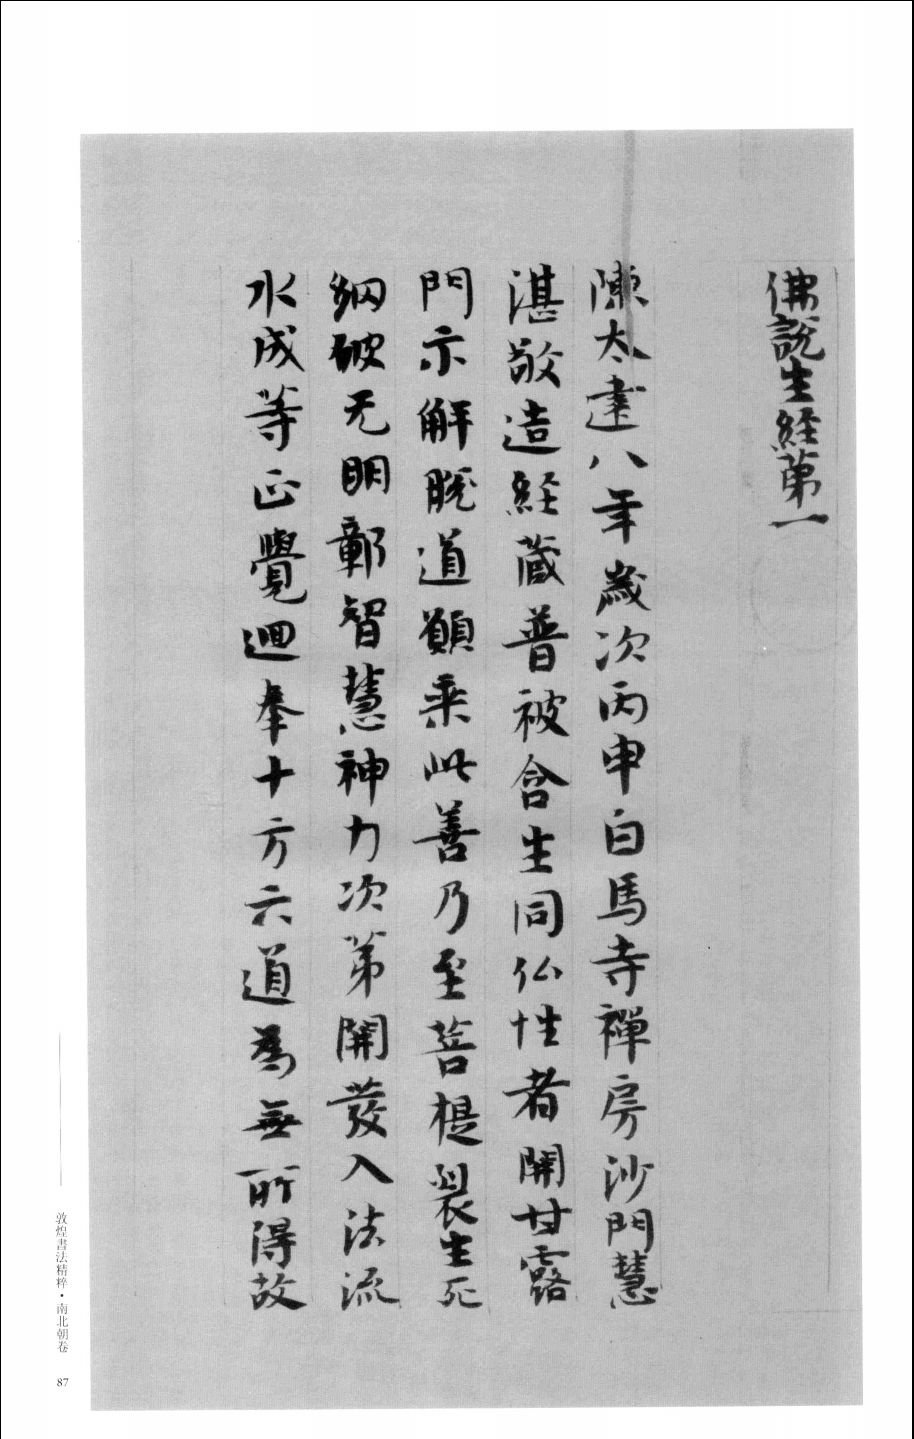 佛說生経苐一
陳太建八年歲次丙申白馬寺禪房沙門慧
湛敬造経藏普被含生同仏性者開甘露
門示解脫道願乘此善乃至菩提裂生死
網破无明鄣智慧神力次苐開發入法流
水成等正覺迴奉十方六道為無所得故
敦煌書法精粹·南北朝卷
87